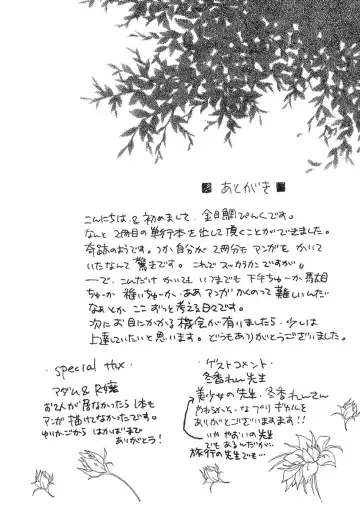 あとがき
こんにちは&初めまして、金目鯛ぴんくです。
なんと2冊目の単行本を出して頂くことができました。
奇跡のようです。つか自分が2冊分もマンガをかいて
いたなんて驚きです。これでスッカラカンですが。
一で、こんだけかいてもいつまでも下手ちゅーか
ちゅーか 稚いちゅーか、ああマンガかくのって難しいんだ
なぁとか ここずっと考える日々です。
次にお目にかかる機会が有りましたら、少しは
上達していたいと思います。どうもありがとうございました。
・special thx・
アダム&R嬢
お2人が居なかったら1本も
マンガ描けてなかったです。
ゆりかごから はかばまで
ありがとう!
・ゲストコメント・
冬香れん先生
美少女の先生、冬香れんさん
やわらかそーなプリギャルを
ありがとーございます!!
いや やおいの先生
でもあるんだが…
旅行の先生でも…